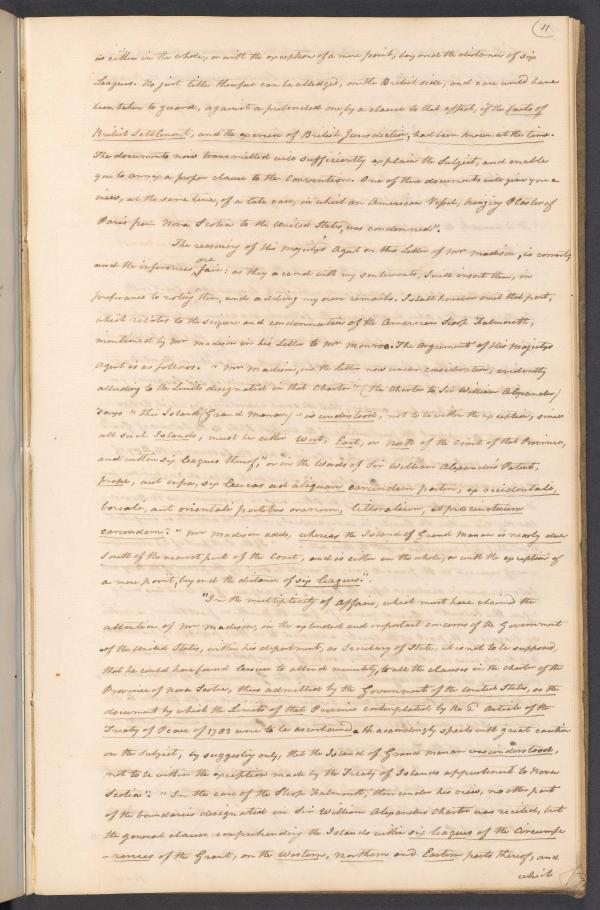 11
is either in the whole, or with the exception of a mere point, beyond the distance of six
Leagues. No just title therefore can be alledged, on the British side, and care would have
been taken to guard, against a pretended one, by a clause to that effect, if the facts of
British Settlement, and the exercise of British Jurisdiction, had been known at the time.
The documents now transmitted will sufficiently explain the Subject, and enable
you to annex a proper clause to the Convention. One of these documents will give you a
view, at the same time, of a late case, in which an American Vessel, bringing Plaster of
Paris from Nova Scotia to the United States, was condemned".
The reasoning of His Majesty's Agent on this Letter of Mr Madison, is correct,
and the inferences are fair: as they accord with my sentiments, I will insert them, in
preferance to noting them, and adding my own remarks. I shall however omit that part,
which relates to the seizure and condemnation of the American Sloop Falmouth,
mentioned by Mr Madison in his Letter to Mr Monroe. The argument of His Majesty's
Agent is as follows. "Mr Madison, in the Letter now under consideration, evidently
alluding to the Limits designated in that Charter" (the Charter to Sir William Alexander)
"says "this Island (Grand Manan) "is understood, not to be within the exception, since
all such Islands, must be either West, East, or North of the Coast of that Province,
and within six leagues thereof," or in the Words of Sir William Alexander's Patent,
prope, aut infra, six leucas ad aliquam earundem partem, ex occidentale,
boreale, aut orientale partibus orarum, littoralium, et præcinctuum
earundem." "Mr Madison adds, whereas the Island of Grand Manan is nearly due
South of the nearest part of the Coast, and is either in the whole, or with the exception of
a mere point, beyond the distance of six leagues".
"In the multiplicity of affairs, which must have claimed the
attention of Mr Madison, in the extended and important concerns of the Government
of the United States, within his department, as Secretary of State, it is not to be supposed,
that he could have found leisure to attend minutely, to all the clauses in the Charter of the
Province of Nova Scotia, thus admitted by the Government of the United States, as the
document by which the Limits of that Province contemplated by the 2d Article of the
Treaty of Peace of 1783 were to be ascertained & he accordingly speaks with great caution
on the Subject, by suggesting only, that the Island of Grand Manan was understood,
not to be within the exception made by the Treaty of Islands appertinent to Nova
Scotia". "In the case of the Sloop Falmouth, then under his view, no other part
of the boundaries designated in Sir William Alexander's Charter was recited, but
the general clause comprehending the Islands within six leagues of the Circumfe
-rences of the Grant, on the Western, Northern and Eastern parts thereof, and
which